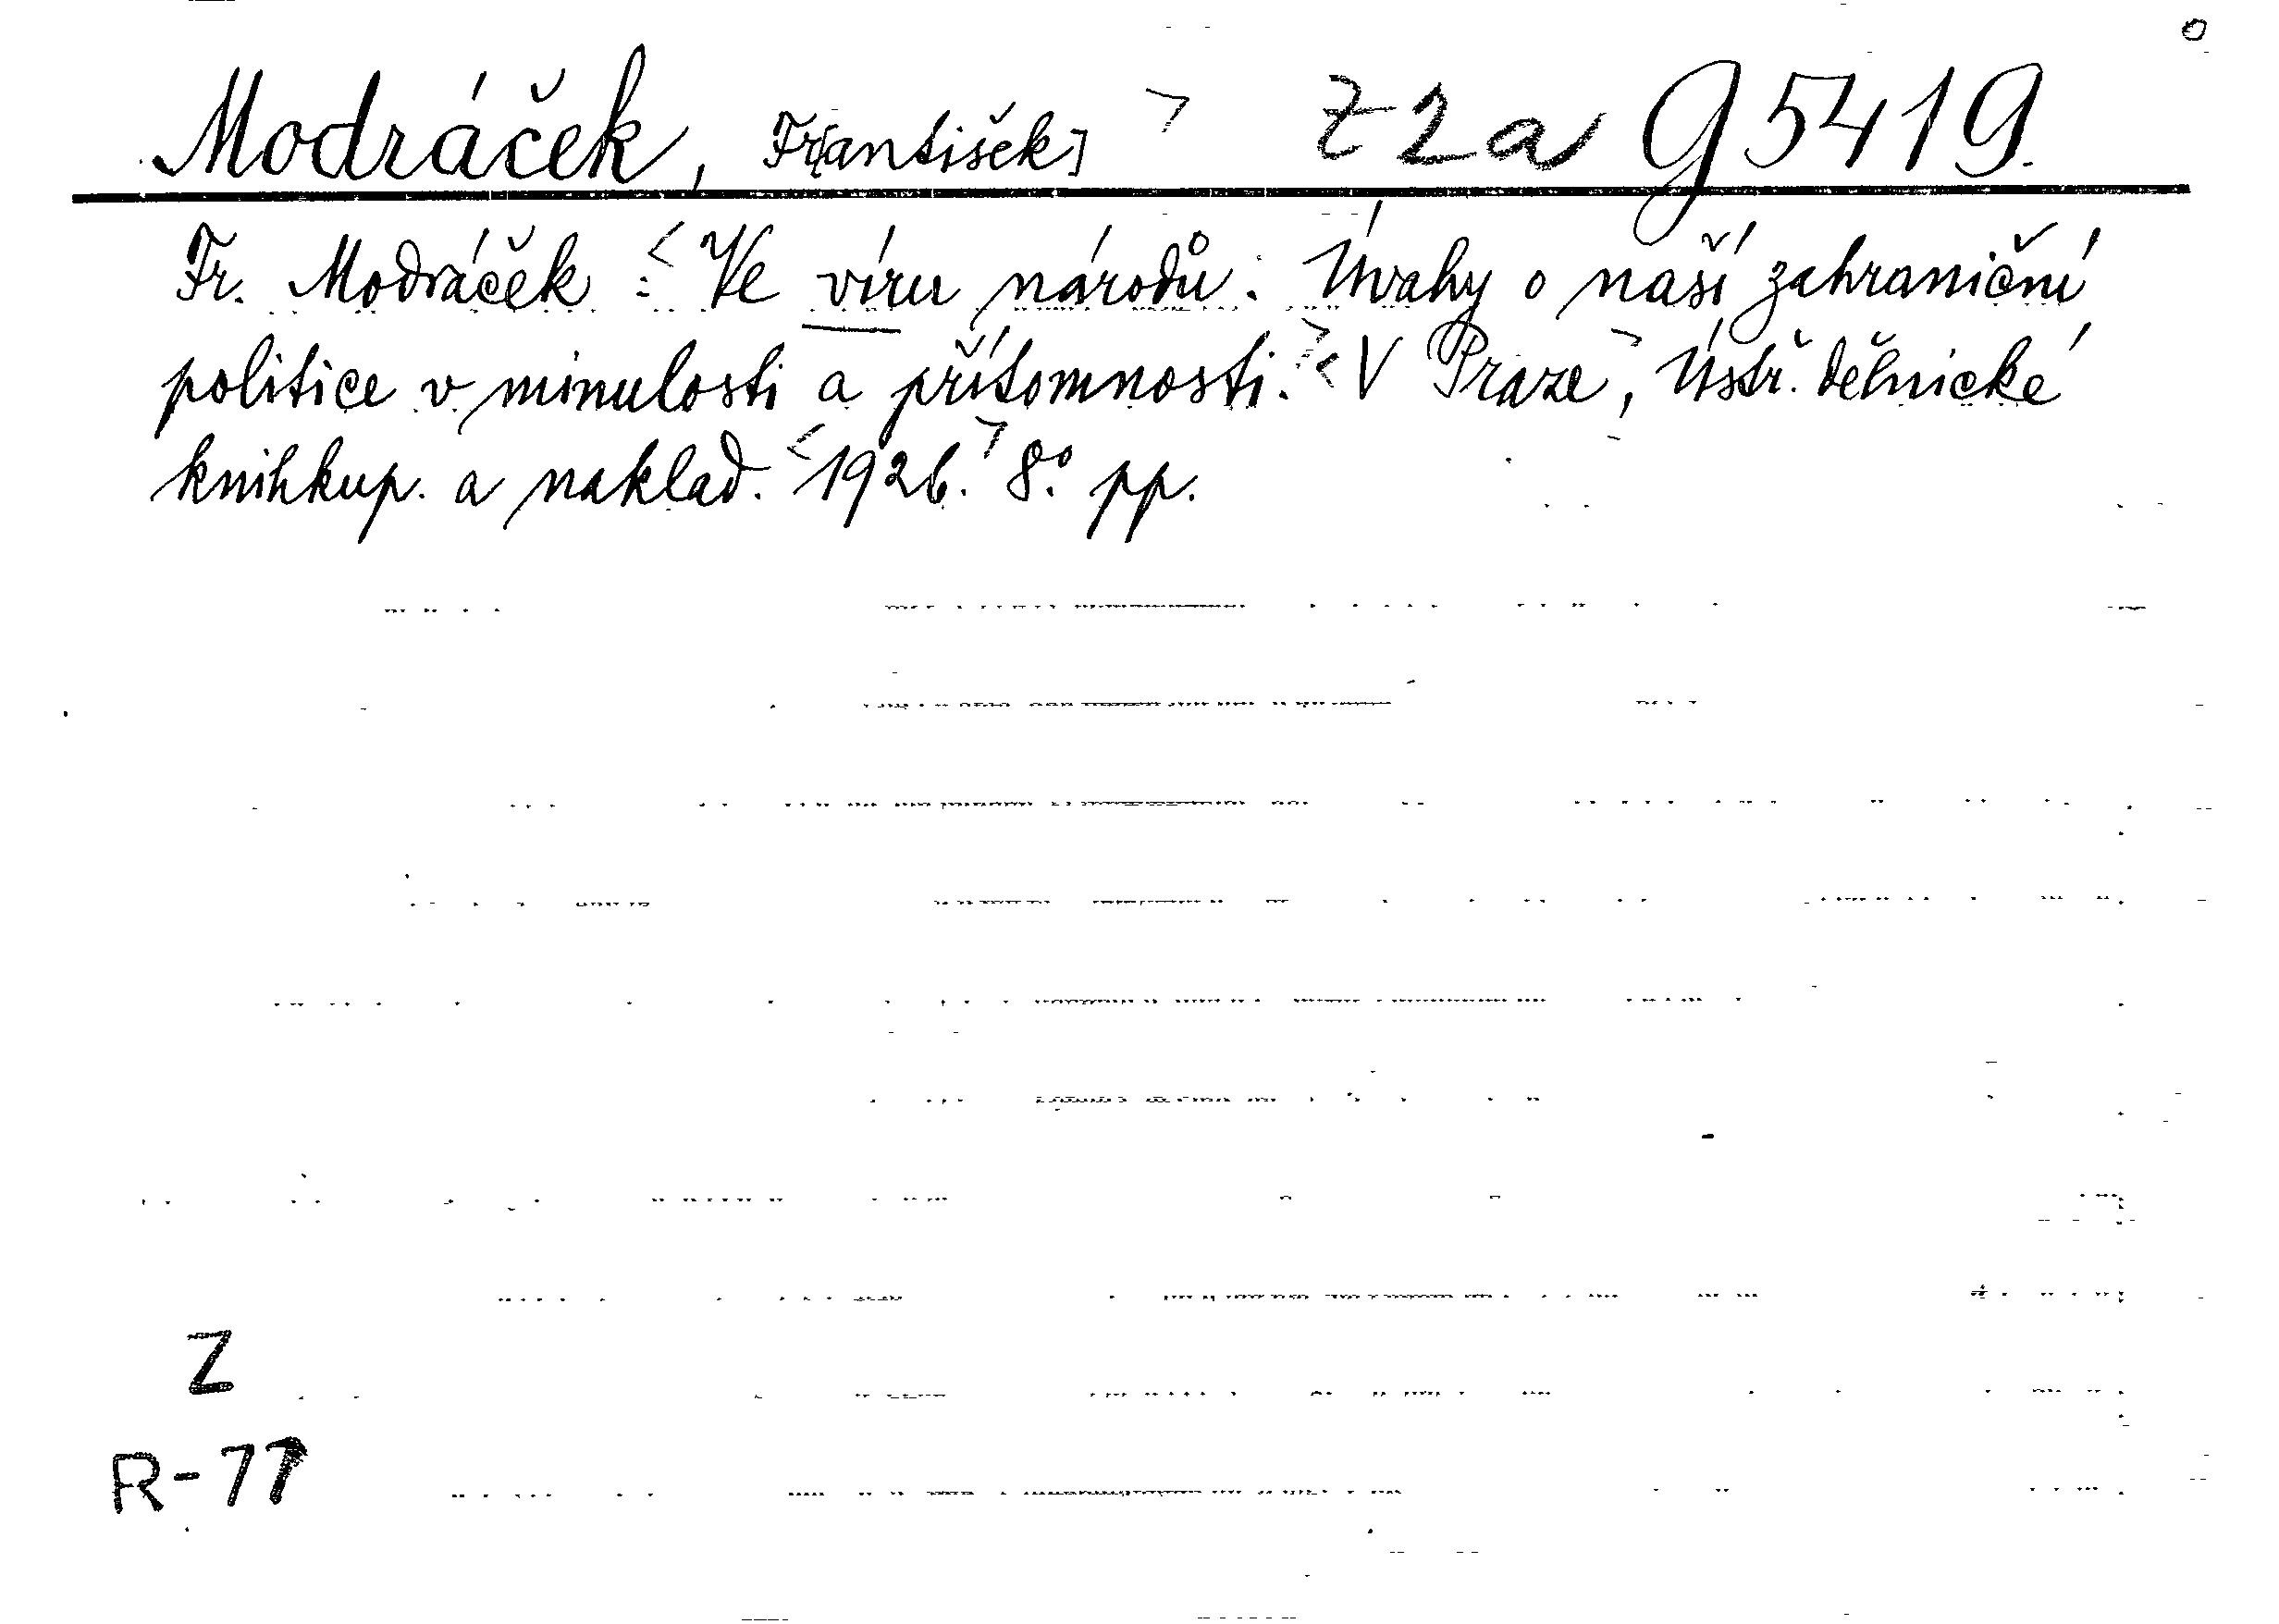 Modráček, Fr[antišek] > Z 2 a G 5419.
Fr. Modráček : < Ve víru národů. Úvahy o naší zahraniční
politice v minulosti a přítomnosti. > < V Praze >, Ústř. dělnické
knihkup. a naklad. < 1926. > 8.° pp.
Z
R-77